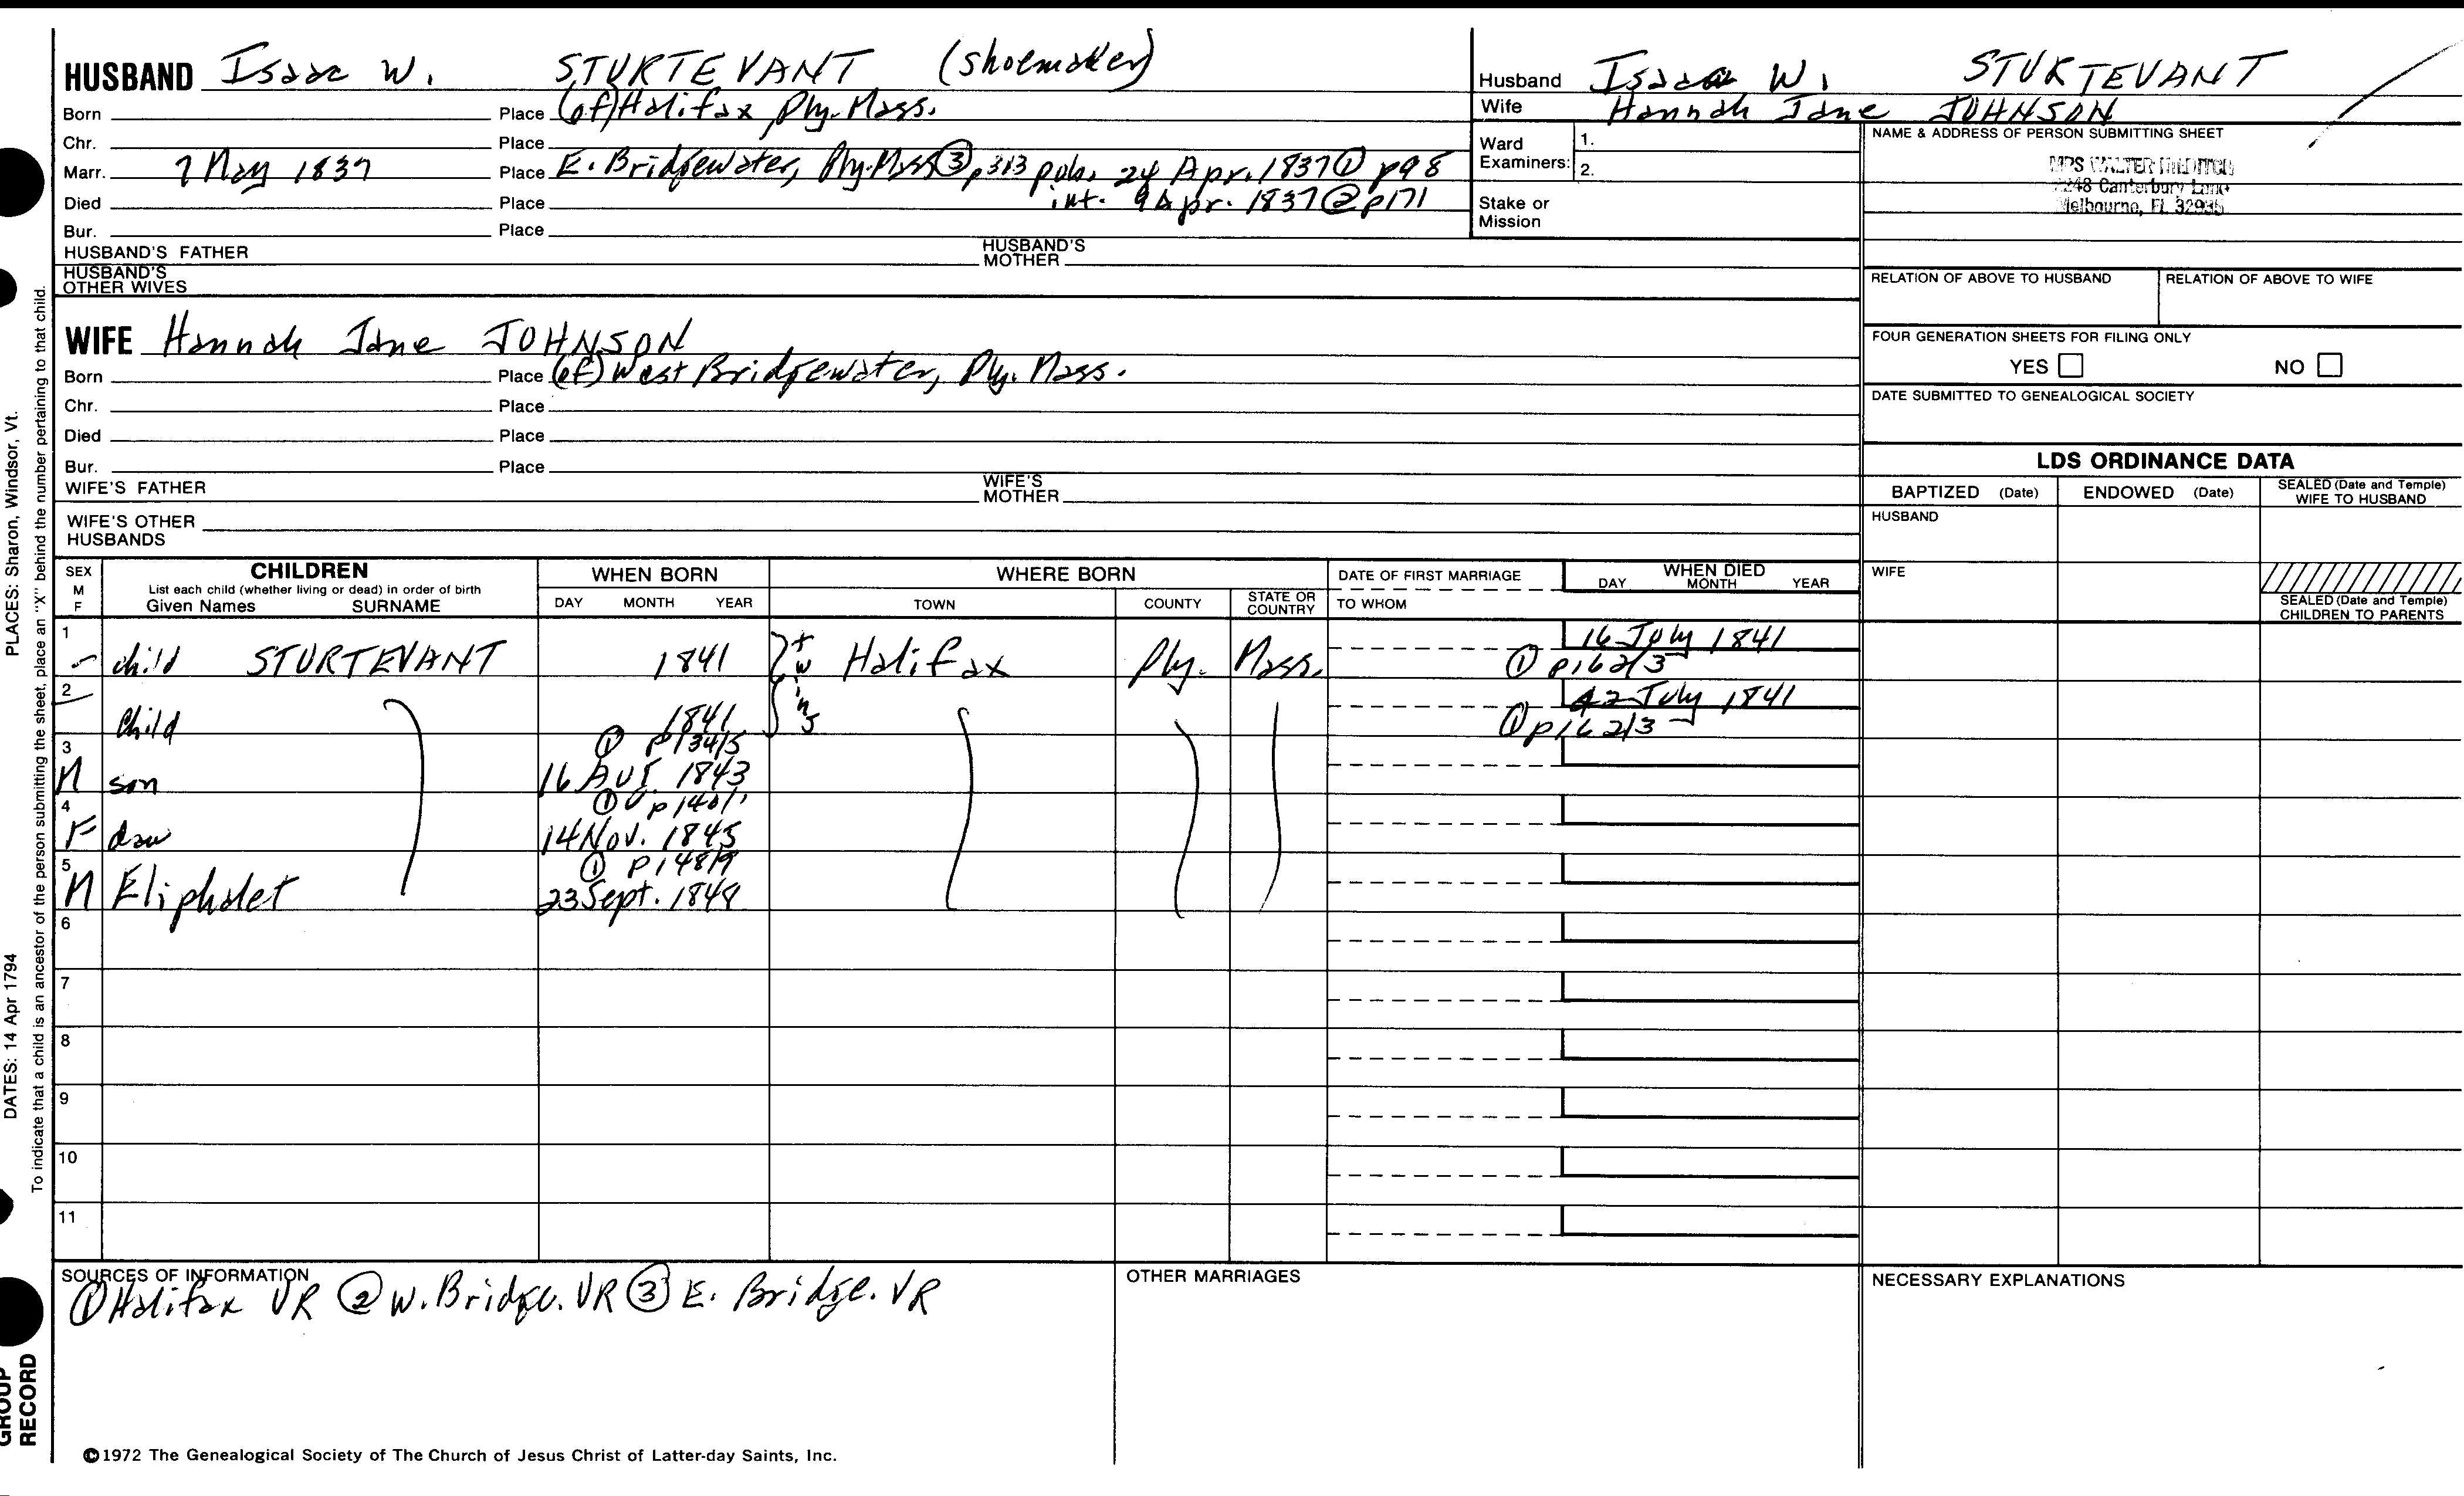 HUSBAND Isaac W. STURTEVANT (shoemaker)
Born Place (of) Halifax, Ply. Mass.
Chr. Place
Marr. 7 May 1837 Place E. Bridgewater, Ply. Mass ③ p313 pub. 24 Apr. 1837 ① p98
int. 9 Apr. 1837 ② p171
Died Place
Bur. Place
HUSBAND'S FATHER HUSBAND'S MOTHER
HUSBAND'S OTHER WIVES
WIFE Hannah Jane JOHNSON
Born Place (of) West Bridgewater, Ply. Mass.
Chr. Place
Died Place
Bur. Place
WIFE'S FATHER WIFE'S MOTHER
WIFE'S OTHER HUSBANDS
Husband Isaac W. STURTEVANT
Wife Hannah Jane JOHNSON
Ward Examiners: 1.
2.
Stake or Mission
NAME & ADDRESS OF PERSON SUBMITTING SHEET
MRS WALTER
Canterbury Lane
Melbourne, FL 32935
RELATION OF ABOVE TO HUSBAND RELATION OF ABOVE TO WIFE
FOUR GENERATION SHEETS FOR FILING ONLY
YES NO
DATE SUBMITTED TO GENEALOGICAL SOCIETY
LDS ORDINANCE DATA
BAPTIZED (Date) ENDOWED (Date) SEALED (Date and Temple) WIFE TO HUSBAND
HUSBAND
WIFE
SEALED (Date and Temple) CHILDREN TO PARENTS
SEX M F
CHILDREN
List each child (whether living or dead) in order of birth
Given Names SURNAME
WHEN BORN
DAY MONTH YEAR
WHERE BORN
TOWN COUNTY STATE OR COUNTRY
DATE OF FIRST MARRIAGE
TO WHOM
WHEN DIED
DAY MONTH YEAR
1 child STURTEVANT 1841 twins Halifax Ply. Mass. 16 July 1841
① p162/3
2 Child 1841 July 1841
① p162/3
① p134/5
3 M son 16 Aug. 1843
① p140/1
4 F dau 14 Nov. 1845
① p148/9
5 M Eliphalet 23 Sept. 1849
6
7
8
9
10
11
SOURCES OF INFORMATION
① Halifax VR ② W. Bridge. VR ③ E. Bridge. VR
OTHER MARRIAGES
NECESSARY EXPLANATIONS
©1972 The Genealogical Society of The Church of Jesus Christ of Latter-day Saints, Inc.
PLACES: Sharon, Windsor, Vt.
DATES: 14 Apr 1794
To indicate that a child is an ancestor of the person submitting the sheet, place an "X" behind the number pertaining to that child.
GROUP
RECORD